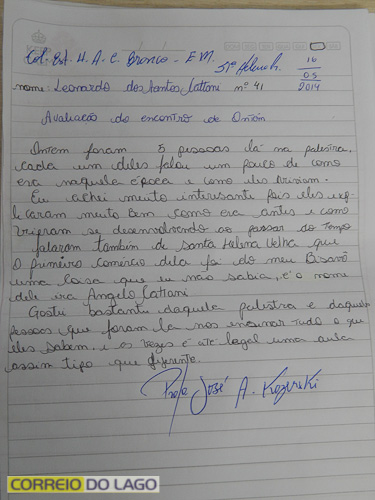 Col. Est. H. A. C. Branco - E.M. Stª Helena Pr. 16
05
2014
nome: Leonardo dos Santos Cattani nº 41
Avaliação do encontro de Ontem
Ontem foram 5 pessoas lá na palestra,
cada um deles falou um pouco de como
era naquela época e como eles viviam.
Eu achei muito interesante pois eles exp-
licaram muito bem como era antes e como
vieram se desenvolvendo ao passar do tempo
falaram tambem de santa Helena Velha que
o primeiro comércio dela foi do meu Bisavô
uma coisa que eu não sabia, e o nome
dele era Angelo Cattani
Gostei bastante daquela palestra e daquelas
pessoas que foram la nos ensinar tudo o que
eles sabem, e as vezes é até legal uma aula
assim tipo que diferente.
Profº José A. Kozerski
CORREIO DO LAGO